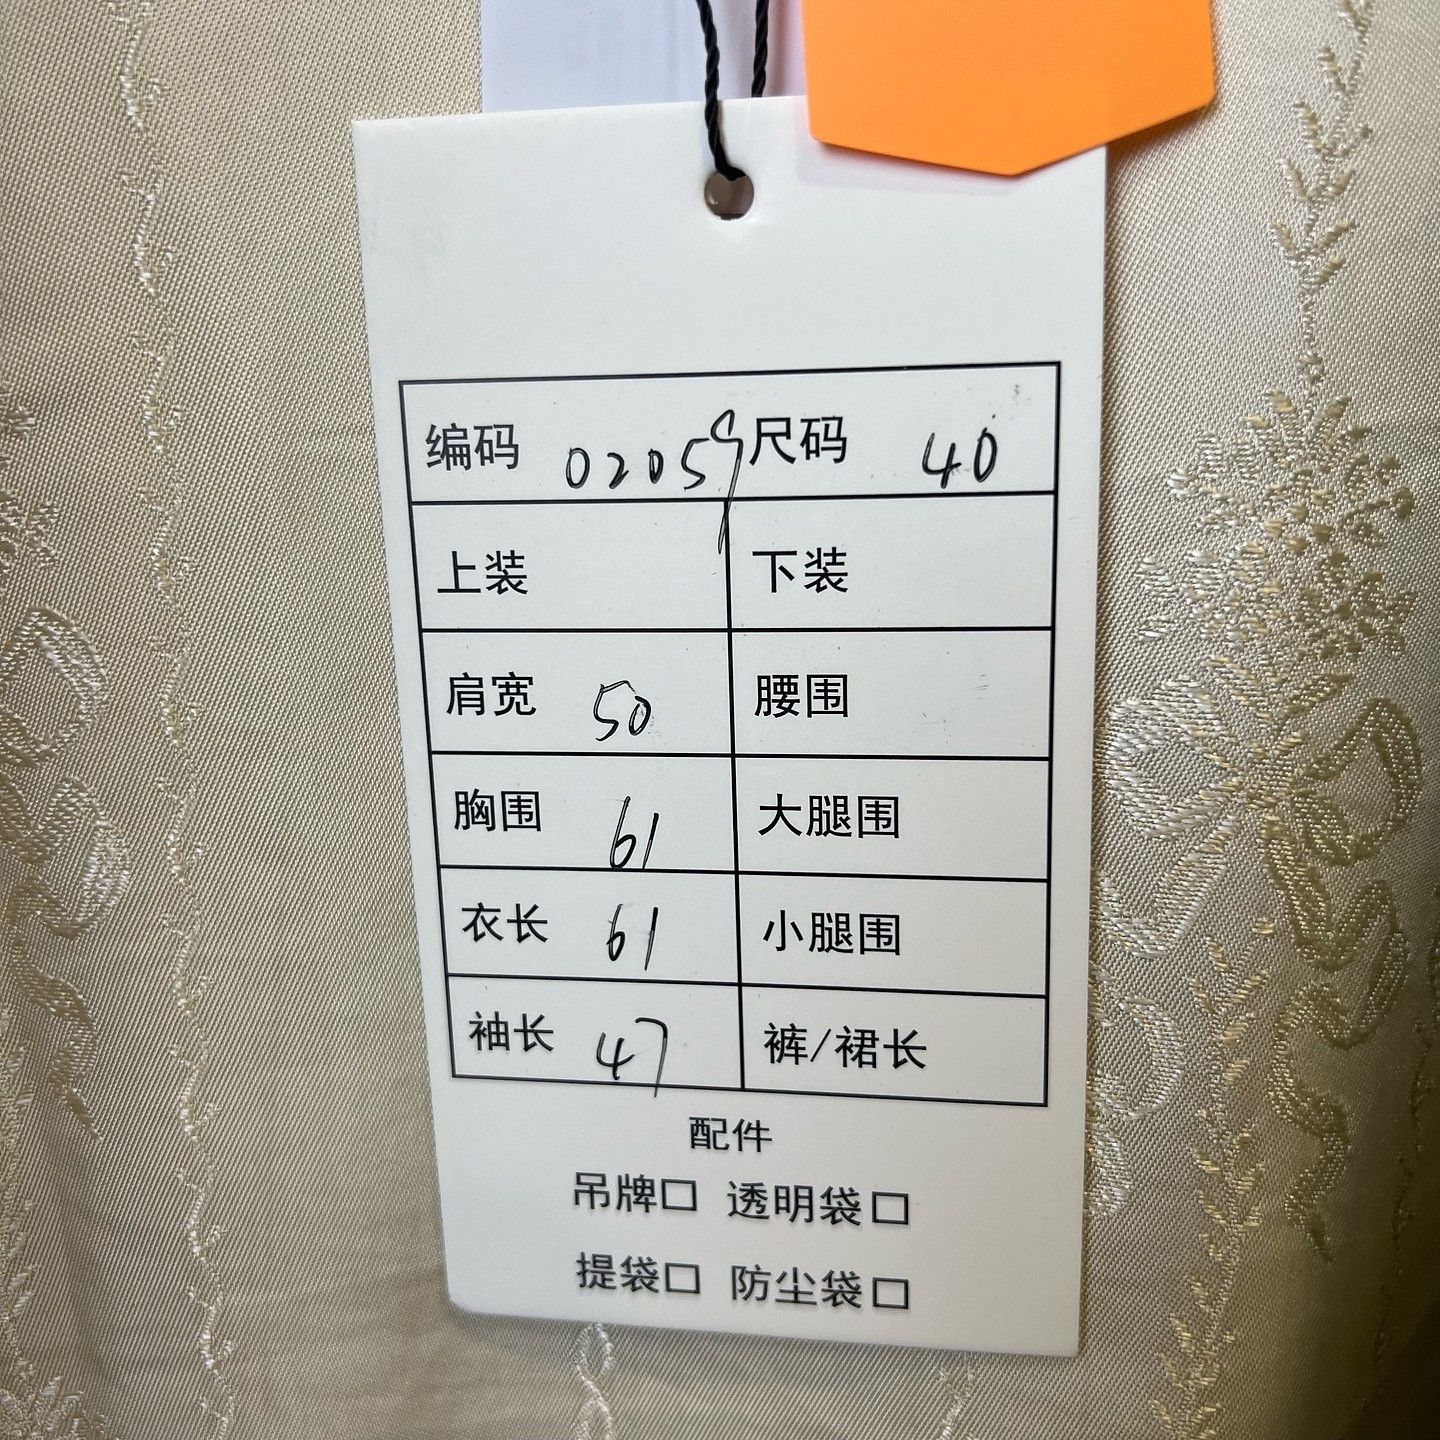 编码 02059 尺码 40
上装 下装
肩宽 50 腰围
胸围 61 大腿围
衣长 61 小腿围
袖长 47 裤/裙长
配件
吊牌□ 透明袋□
提袋□ 防尘袋□